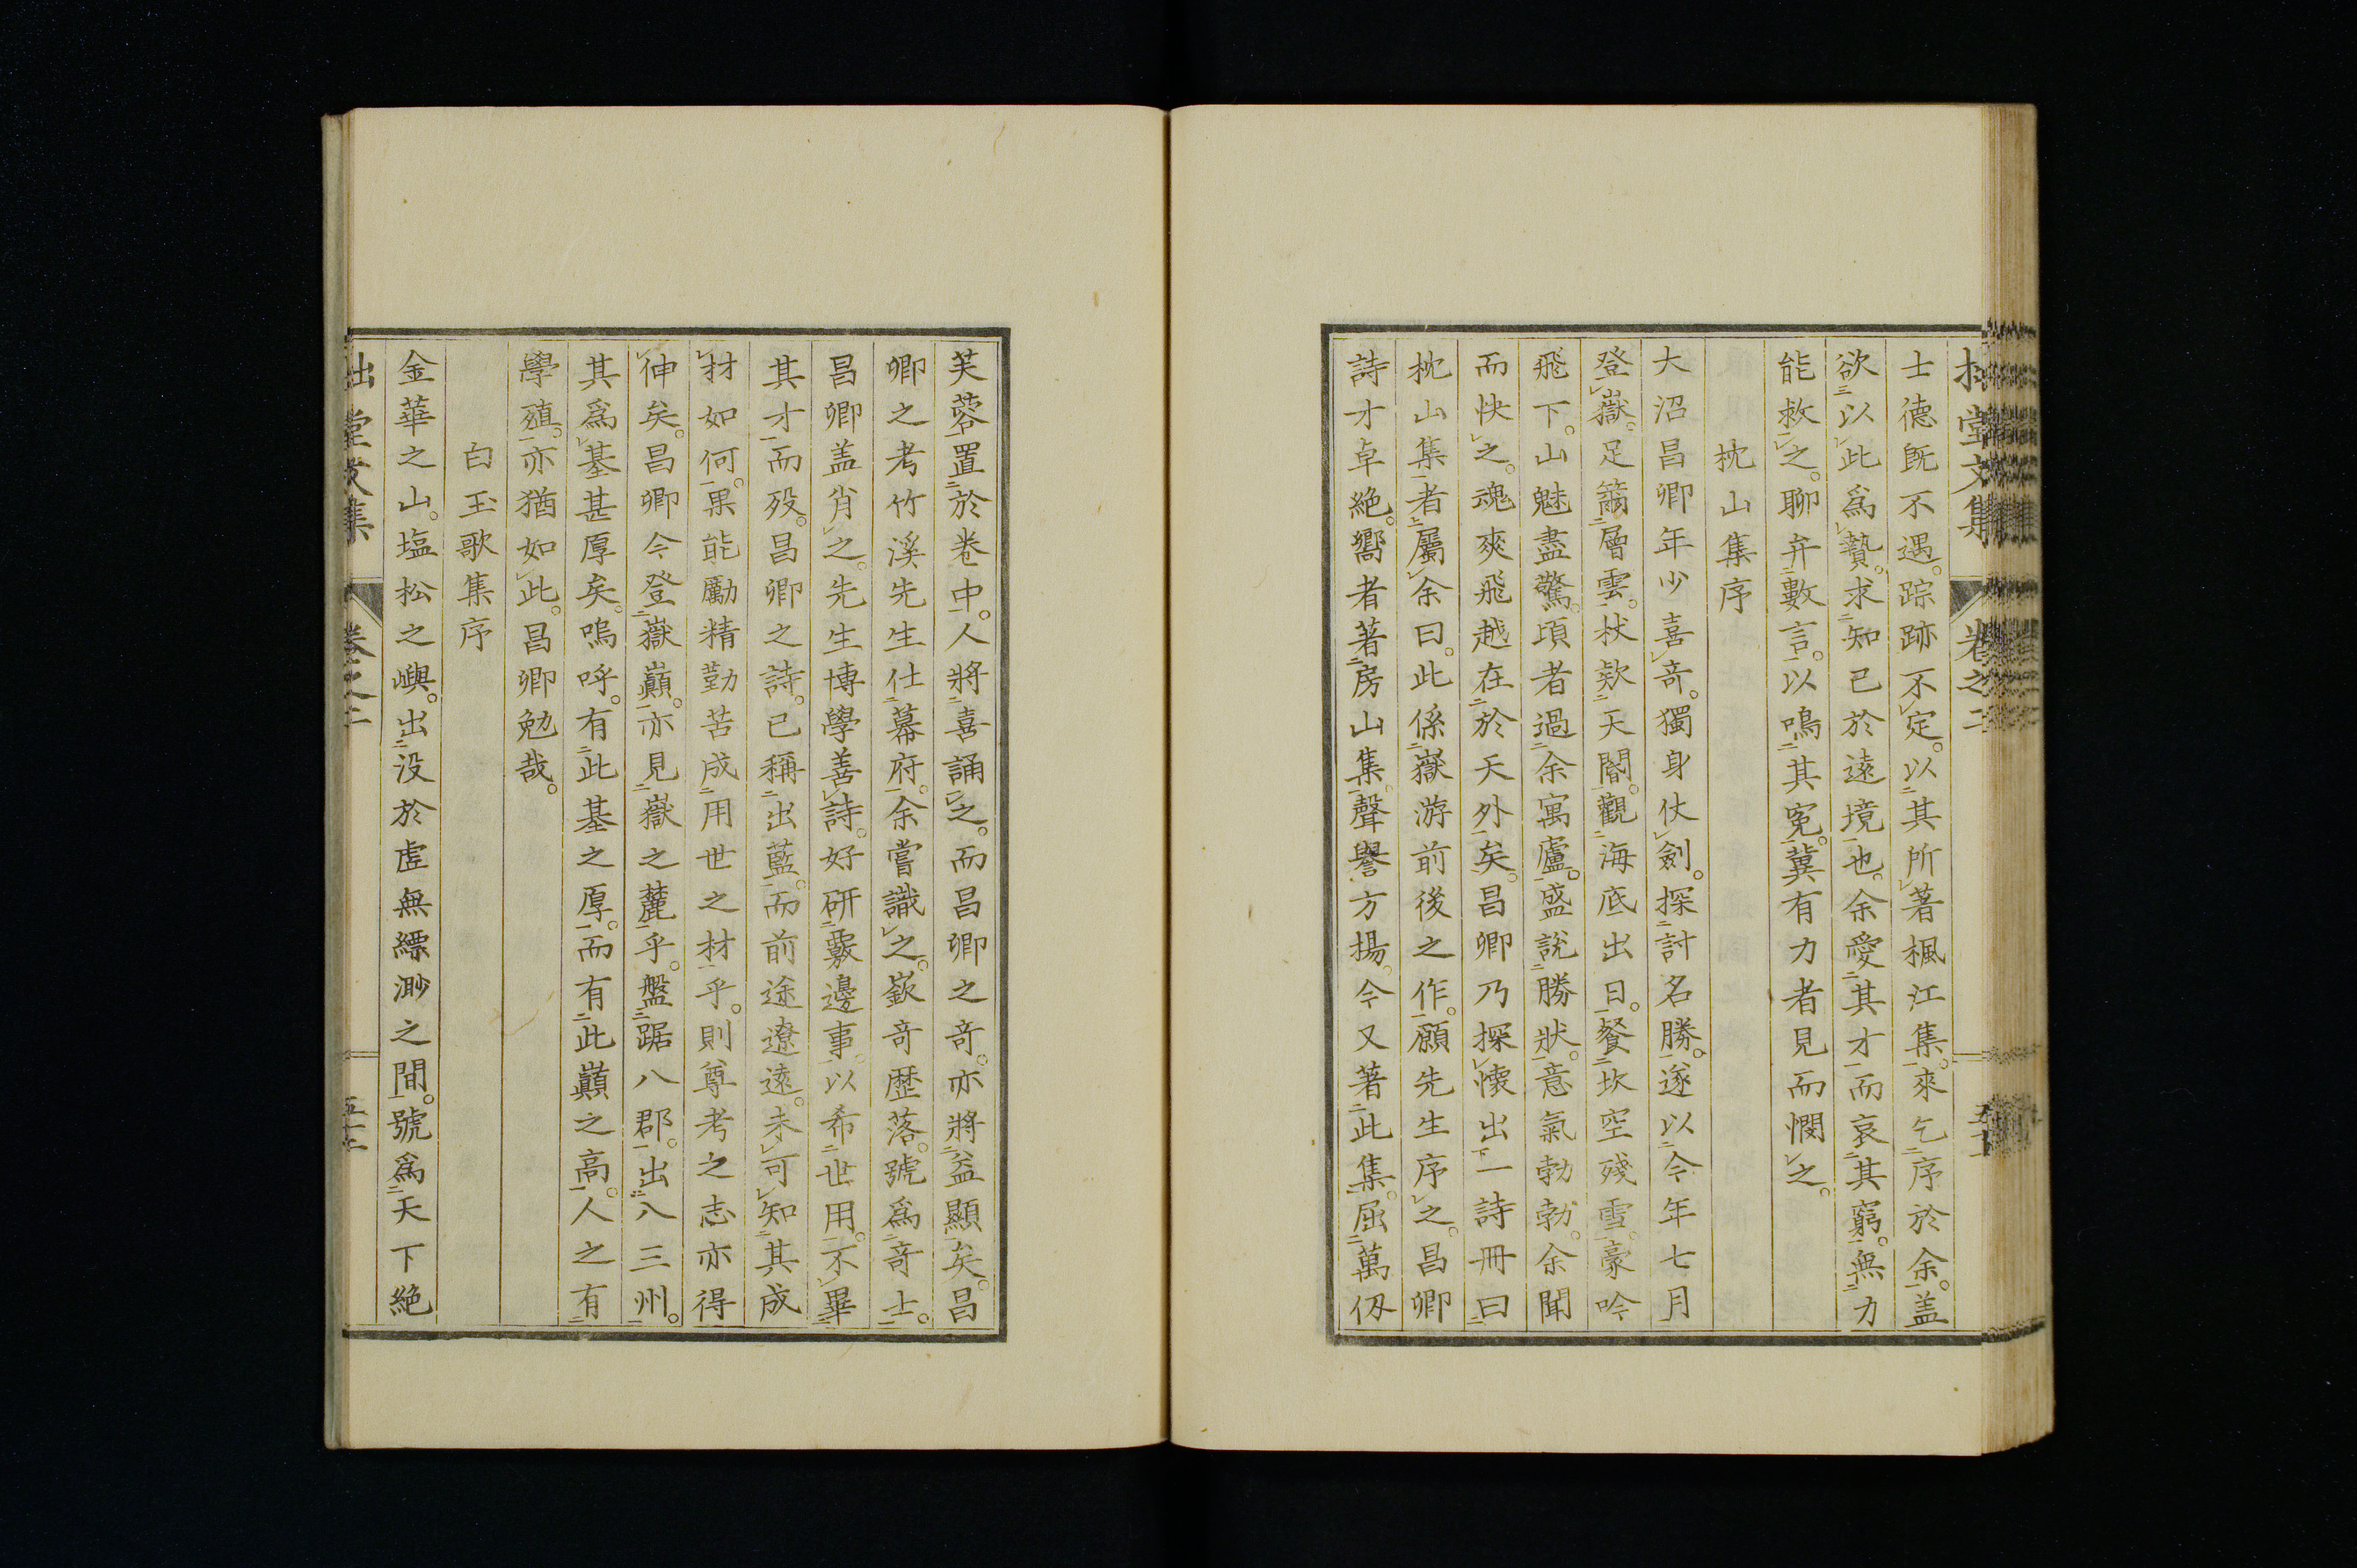 士德既不遇。踪跡不定。以其所著楓江集。來乞序於余。盖
欲以此爲贄。求知已於遠境也。余愛其才而哀其窮。無力
能救之。聊弁數言。以鳴其寃。冀有力者見而憫之。
枕山集序
大沼昌卿年少喜竒。獨身仗劍。探討名勝。遂以今年七月
登嶽。足籋層雲。杖欵天閽。觀海底出日。餐坎空殘雪。豪吟
飛下。山魅盡驚。頃者過余寓廬。盛說勝狀。意氣勃勃。余聞
而快之。魂爽飛越在於天外矣。昌卿乃探懷出一詩冊曰
枕山集者屬余曰。此係嶽游前後之作。願先生序之。昌卿
詩才卓絶。嚮者著房山集。聲譽方揚。今又著此集。屈萬仭
芙蓉置於卷中。人將喜誦之。而昌卿之竒。亦將益顯矣。昌
卿之考竹溪先生仕幕府。余嘗識之。嶔竒歴落。號爲竒士。
昌卿盖肖之。先生博學善詩。好研覈邊事。以希世用。不畢
其才而歿。昌卿之詩。已稱出藍。而前途遼遠。未可知其成
材如何。果能勵精勤苦成用世之材乎。則尊考之志亦得
伸矣。昌卿今登嶽巔。亦見嶽之麓乎。盤踞八郡。出八三州。
其爲基甚厚矣。嗚呼。有此基之厚。而有此巔之高。人之有
學殖。亦猶如此。昌卿勉哉。
白玉歌集序
金華之山。塩松之嶼。出没於虛無縹渺之間。號爲天下絶
堂文集 卷之二